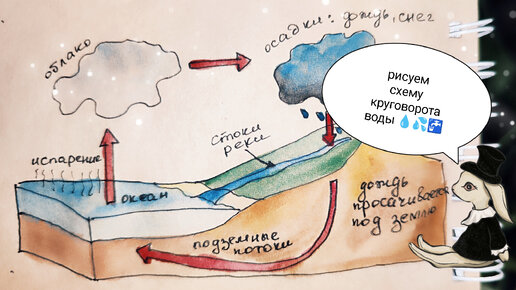 облако
осадки: дождь, снег
рисуем
схему
круговорота
воды 💧💦🚰
стоки
реки
испарение
океан
дождь
просачивается
под землю
подземные
потоки